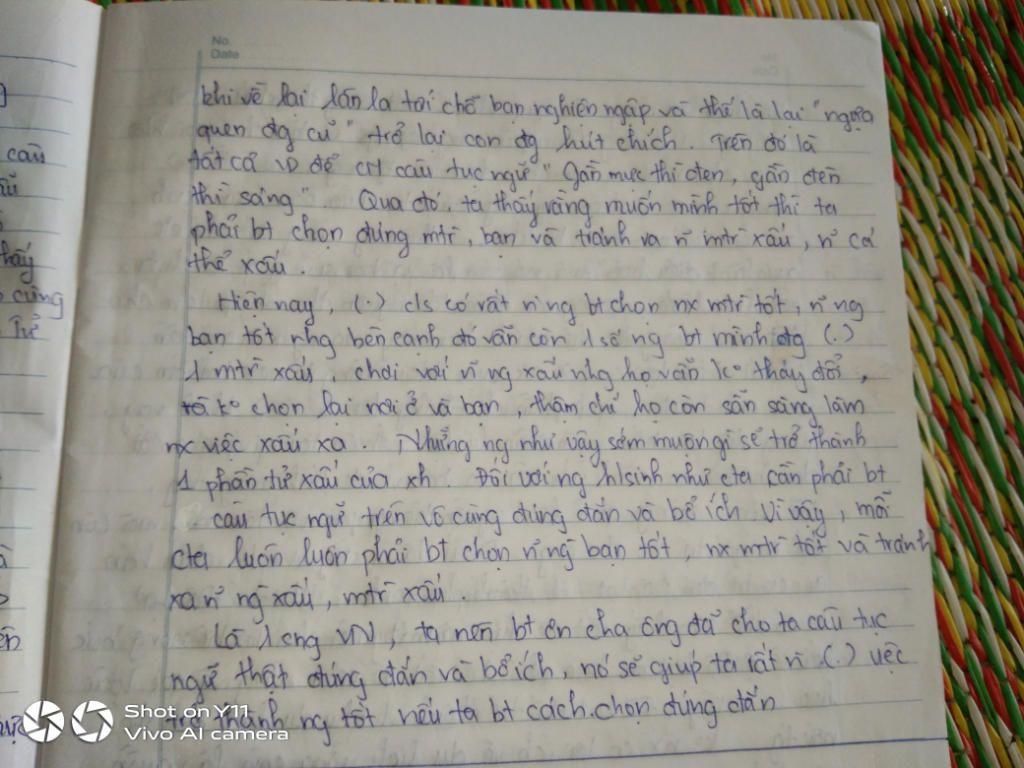 No
Date
khi về lại lán la tới chỗ bạn nghiên ngập và thế là lại "ngựa
quen đg cũ" trở lại con đg hút chích. Trên đó là
tất cả VD để CM câu tục ngữ "Gần mực thì đen, gần đèn
thì sáng". Qua đó, ta thấy rằng muốn mình tốt thì ta
phải bt chọn đúng mtr, bạn và tránh xa n~ mtr xấu, n~ cá
thể xấu.
Hiện nay, (.) c/s có rất n` ng bt chọn nx mtr tốt, n~ ng
bạn tốt nhg bên cạnh đó vẫn còn 1 số ng bt mình đg (.)
1 mtr xấu, chơi với n~ ng xấu nhg họ vẫn ko thay đổi,
ko chọn lại nơi ở và bạn, thậm chí họ còn sẵn sàng làm
nx việc xấu xa. Những ng như vậy sớm muộn gì sẽ trở thành
1 phần tử xấu của xh. Đối với ng h/sinh như cta cần phải bt
câu tục ngữ trên vô cùng đúng đắn và bổ ích. Vì vậy, mỗi
cta luôn luôn phải bt chọn n~ ng bạn tốt, nx mtr tốt và tránh
xa n~ ng xấu, mtr xấu
Là 1 cng VN, ta nên bt ơn cha ông đã cho ta câu tục
ngữ thật đúng đắn và bổ ích, nó sẽ giúp ta rất n` (.) việc
trở thành ng tốt nếu ta bt cách chọn đúng đắn
câu
thấy
cùng
Từ
Shot on Y11
Vivo AI camera